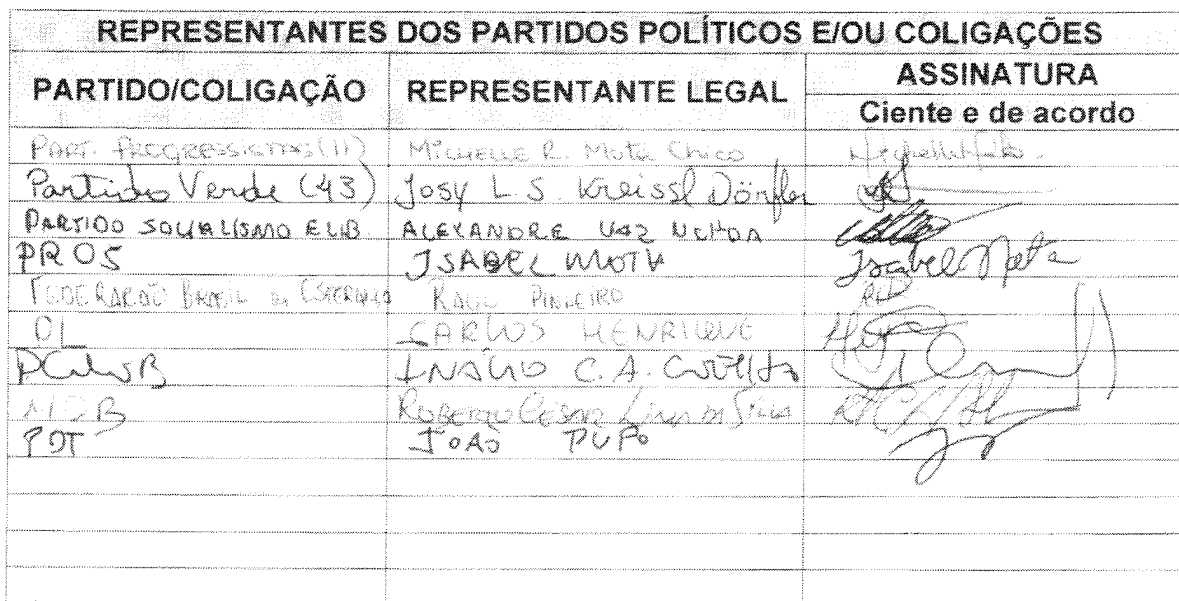 REPRESENTANTES DOS PARTIDOS POLÍTICOS E/OU COLIGAÇÕES
PARTIDO/COLIGAÇÃO REPRESENTANTE LEGAL ASSINATURA
Ciente e de acordo
PART. PROGRESSISTAS (11) MICHELLE R. Mota Chico
Partido Verde (43) Josy L. S. Kreissl Dörfler
PARTIDO SOCIALISMO E LIB. ALEXANDRE VAZ
PROS ISABEL MOTA Isabel Mota
FEDERAÇÃO BRASIL DA ESPERANÇA RAUL PINHEIRO
PL CARLOS HENRIQUE
PCdoB INÁCIO C. A.
MDB ROBERTO CÉSAR LIMA DA SILVA
PDT JOAO PUPO